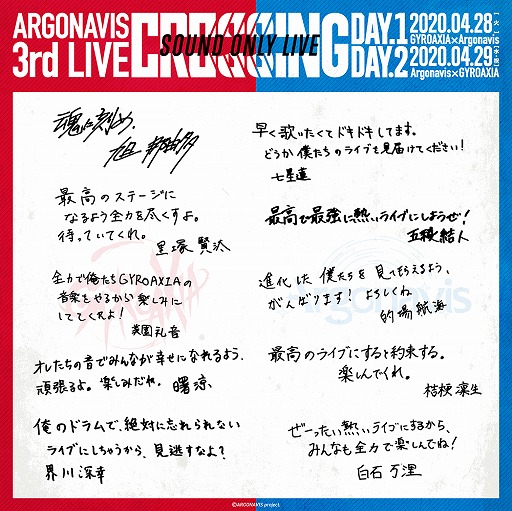 ARGONAVIS
3rd LIVE
CROSSING
SOUND ONLY LIVE
DAY.1 2020.04.28 [火]
GYROAXIA×Argonavis
DAY.2 2020.04.29 [水・祝]
Argonavis×GYROAXIA
魂に刻め。
旭 那由多
最高のステージに
なるよう全力を尽くすよ。
待っていてくれ。
里塚 賢汰
全力で俺たちGYROAXIAの
音楽をやるから楽しみに
しててくれよ!
美園礼音
オレたちの音でみんなが幸せになれるよう、
頑張るよ。楽しみだね。 曙 涼
俺のドラムで、絶対に忘れられない
ライブにしちゃうから、見逃すなよ?
界川深幸
早く歌いたくてドキドキしてます。
どうか僕たちのライブを見届けてください!
七星蓮
最高で最強に熱いライブにしようぜ!
五稜結人
進化した僕たちを見てもらえるよう、
がんばります! よろしくね
的場航海
最高のライブにすると約束する。
楽しんでくれ。
桔梗凛生
ぜーったい熱いライブにするから、
みんなも全力で楽しんでね!
白石万浬
GYROAXIA
Argonavis
©ARGONAVIS project.